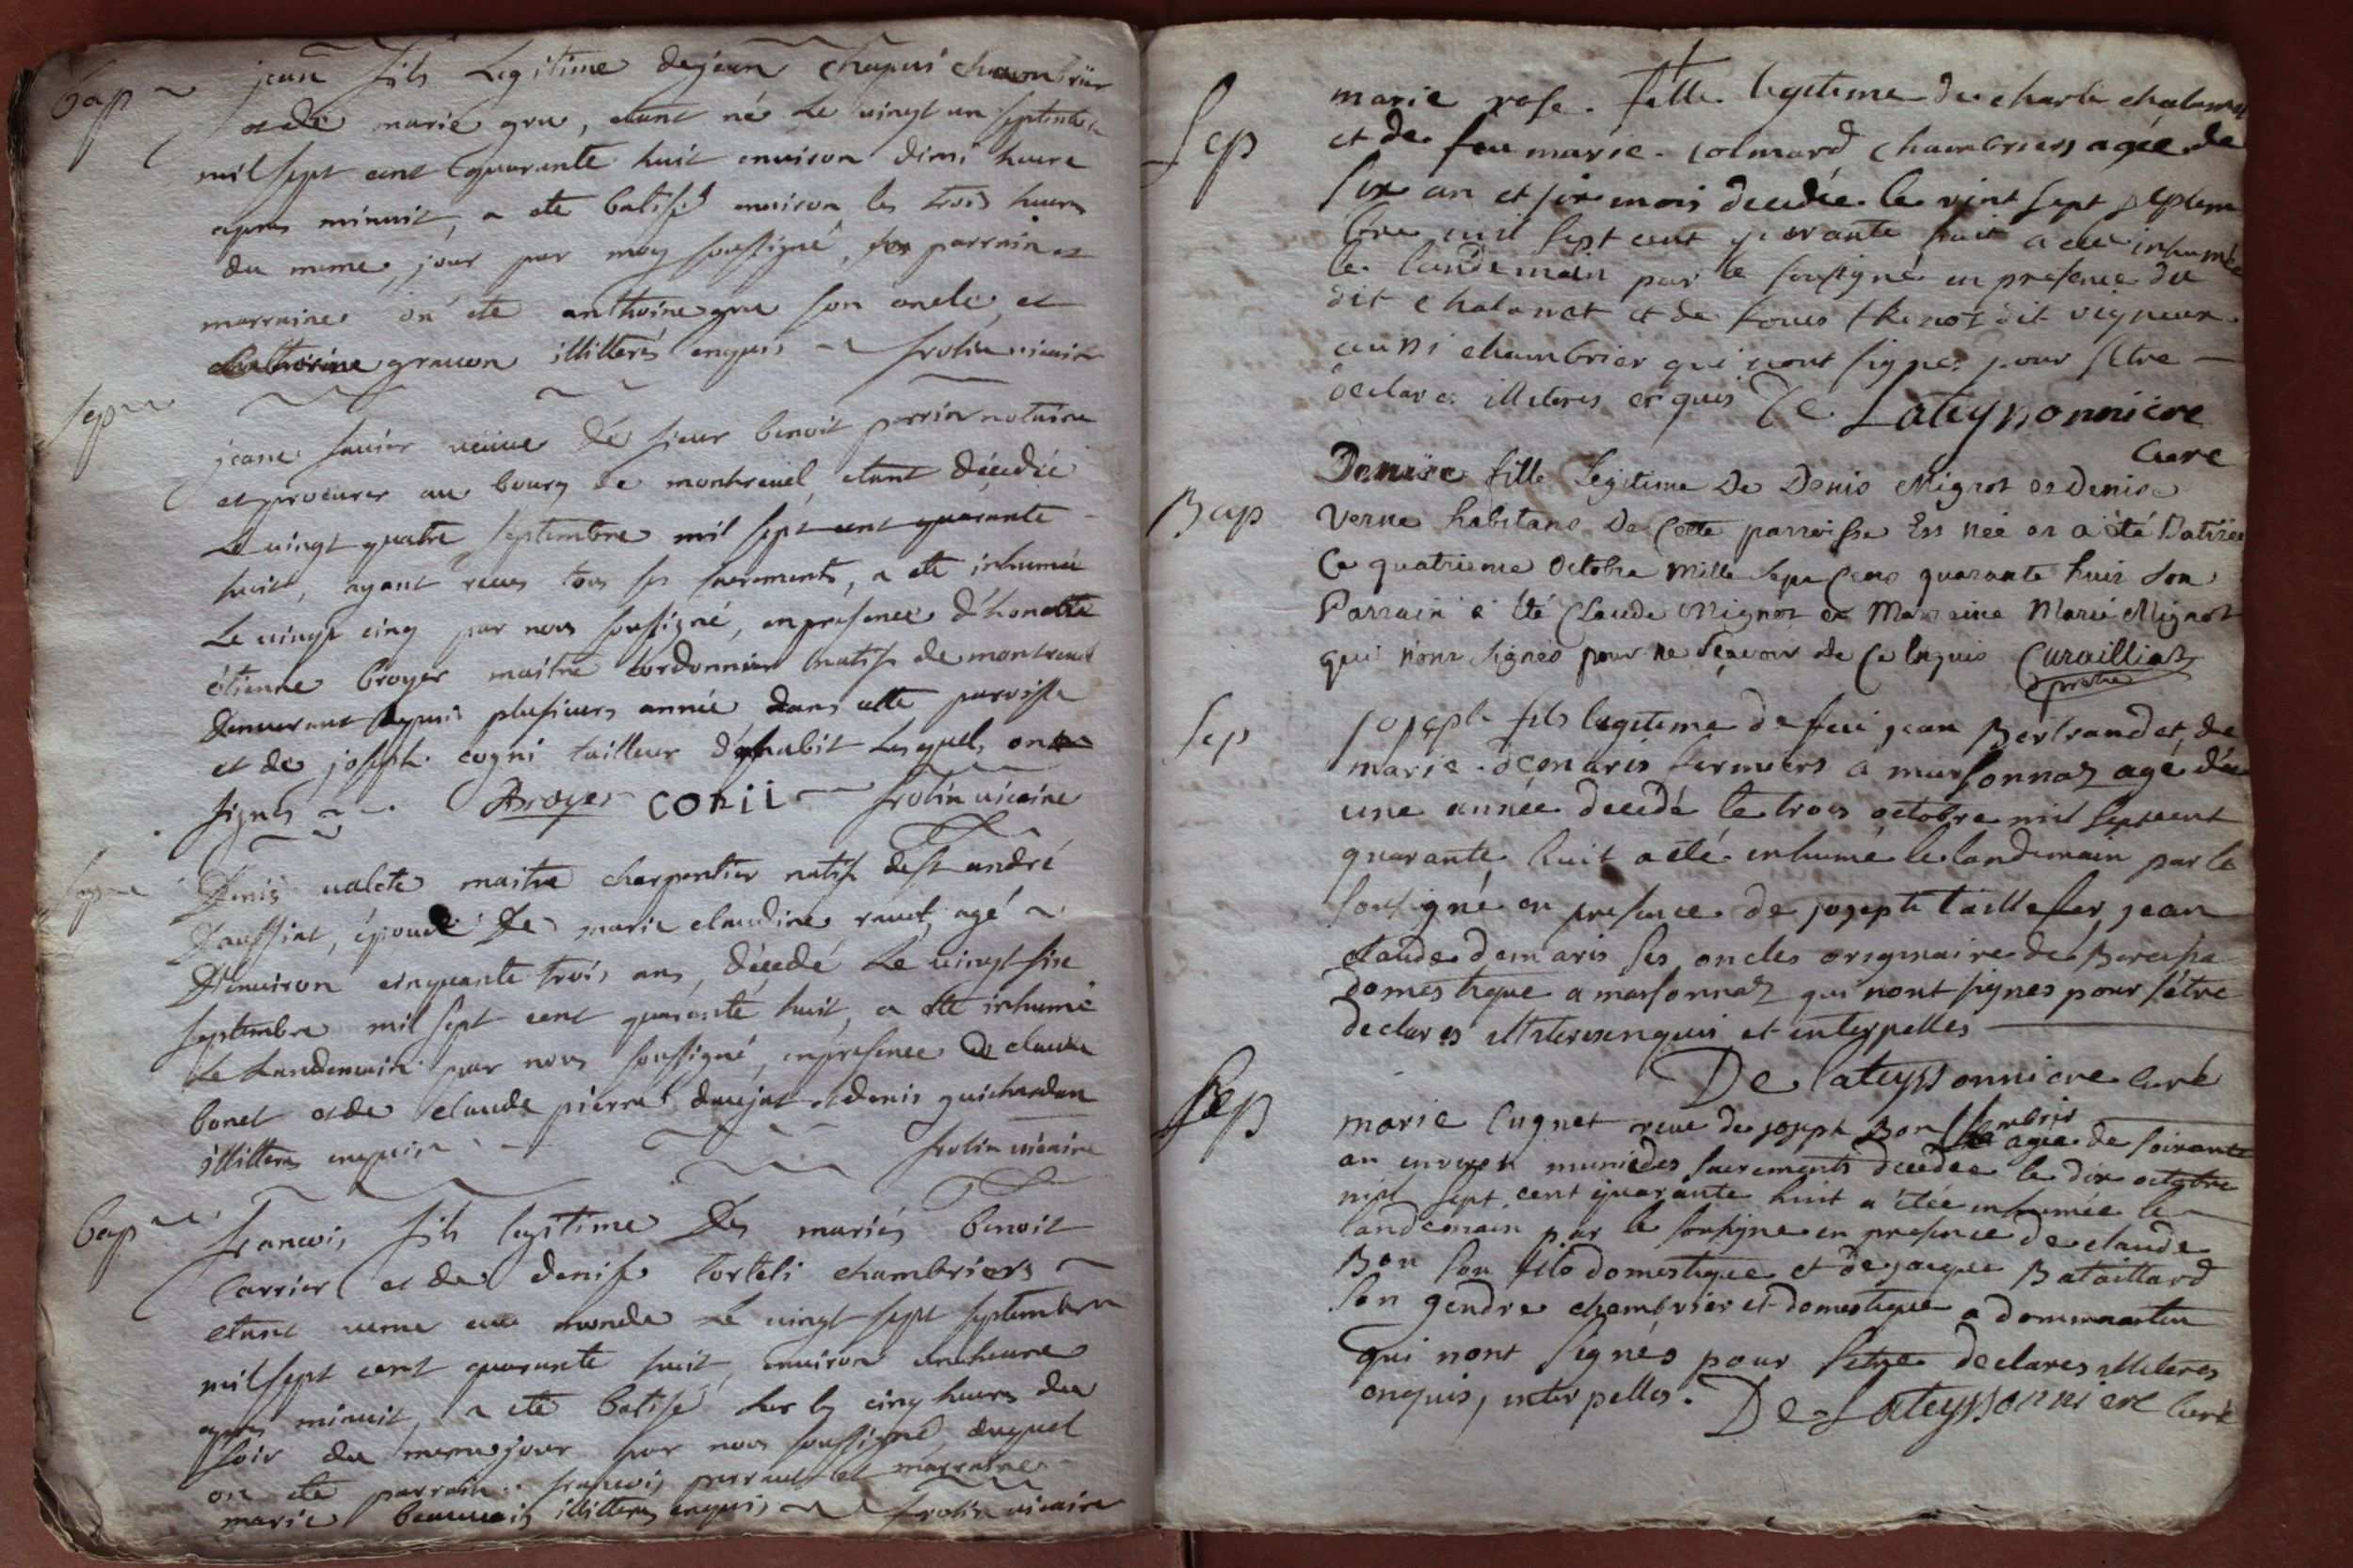 bap
jean fils Legitime dejean Chapui chambrier
et de marie gru, etant né Le vingt un septembre
mil sept cent quarante huit environ dimi heure
apres minuit, a ete batisé environ les trois heures
du meme jour par moy soussigné, ses parrain et
marraine on ete anthoine gru son oncle et
catherine illitterés enquis frolin vicaire
sep
jeane veuve de sieur benoit perrin notaire
et procureur au bourg de montrevel, etant décedée
Le vingt quatre septembre mil sept cent quarante
huit, ayant reçus tous ses sacrements, a ete inhumée
Le vingt cinq par nous soussigné, en presence d'honette
étienne broyer maitre cordonnier natif de montrevel
demeurant depuis plusieurs année dans cette paroisse
et de joseph cogni tailleur d'habit Lesquels ont
signés Broyer CONII frolin vicaire
Denis valete maitre charpentier natif de st andré
époux De marie claudine agé
D'environ cinquante trois ans, décedé Le vingt six
septembre mil sept cent quarante huit, a ete inhumé
Le Landemain par nous soussigné, en presence de claude
bonet et de claude pierre et denis guichardon
illitteres enquis frolin vicaire
bap
francois fils legitime Des mariés benoit
Carrier et de denise Corteli chambriers
etant venu au monde Le vingt sept septembre
mil sept cent quarante huit, environ une heure
apres minuit, a ete batisé sur les cinq heures du
soir du meme jour par nous soussigné, duquel
on ete parrain francois perraud et marraine
marie illitteres enquis frolin vicaire
Sep
marie rose fille legitime de charle chalanet
et de feu marie colmard chambriers agée de
six an et six mois decedée le vint sept septem
bre mil sept cent quarante huit a ete inhumée
le landemain par le sousigné en presence du
dit chalanet et de dit vigneur
aussi chambrier qui nont signes pour setre
declare illiteres enquis De Lateyssonniere
Curé
Bap
Denise fille Legitime De Denis Mignot et Denise
Verne habitans De Cette parroisse Est née et a été Batisée
Ce quatrieme Octobre Mille Sept Cens quarante huit Son
Parrain a été Claude Mignot et Marraine Marie Mignot
qui n'ont signés pour ne sçavoir de ce Enquis Curailliat
pretre
Sep
joseph fils legitime de feu jean Bertrand et de
marie demaris fermiers a marsonnaz agé de
une année decedé le trois octobre mil sept cent
quarante huit a été inhumé le landemain par le
sousigné en presence de joseph taillefer, jean
claude demaris ses oncles originaire de Beresia
domestique a marsonnaz qui nont signes pour setre
declares illiteres enquis et interpelles
De lateyssonniere curé
Sep
marie Cugnet veuve de joseph Bon chambrier agée de soixante
an environ muniedes sacrements decedee le dix octobre
mil sept cent quarante huit a étée inhumée le
landemain par le sousigne en presence de claude
Bon son fils domestique et de jaque Bataillard
son gendre chambrier et domestique a dommartin
qui nont signés pour setre declares illiteres
enquis, interpelles. De Lateyssonniere Curé